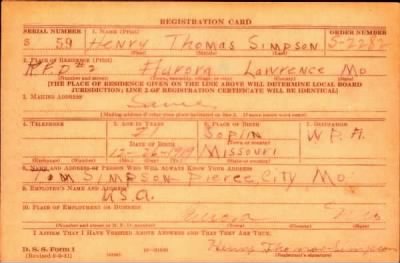 REGISTRATION CARD
SERIAL NUMBER 1. NAME (Print) ORDER NUMBER
S 59 Henry Thomas Simpson S-2282
2. PLACE OF RESIDENCE (Print)
R.F.D #2 Aurora Lawrence Mo
[THE PLACE OF RESIDENCE GIVEN ON THE LINE ABOVE WILL DETERMINE LOCAL BOARD
JURISDICTION; LINE 2 OF REGISTRATION CERTIFICATE WILL BE IDENTICAL]
3. MAILING ADDRESS
Same
[Mailing address if other than place indicated on line 2. If same insert word same]
4. TELEPHONE 5. AGE IN YEARS 6. PLACE OF BIRTH 7. OCCUPATION
21 W.P.A.
DATE OF BIRTH
12-26-1919 Missouri
(Exchange) (Number) (Mo.) (Day) (Yr.) (State or country)
8. NAME AND ADDRESS OF PERSON WHO WILL ALWAYS KNOW YOUR ADDRESS
Tom Simpson Pierce City Mo.
9. EMPLOYER'S NAME AND ADDRESS
U.S.A.
10. PLACE OF EMPLOYMENT OR BUSINESS
Mo
I AFFIRM THAT I HAVE VERIFIED ABOVE ANSWERS AND THAT THEY ARE TRUE.
D. S. S. Form 1 Henry Thomas Simpson
(Registrant's signature)